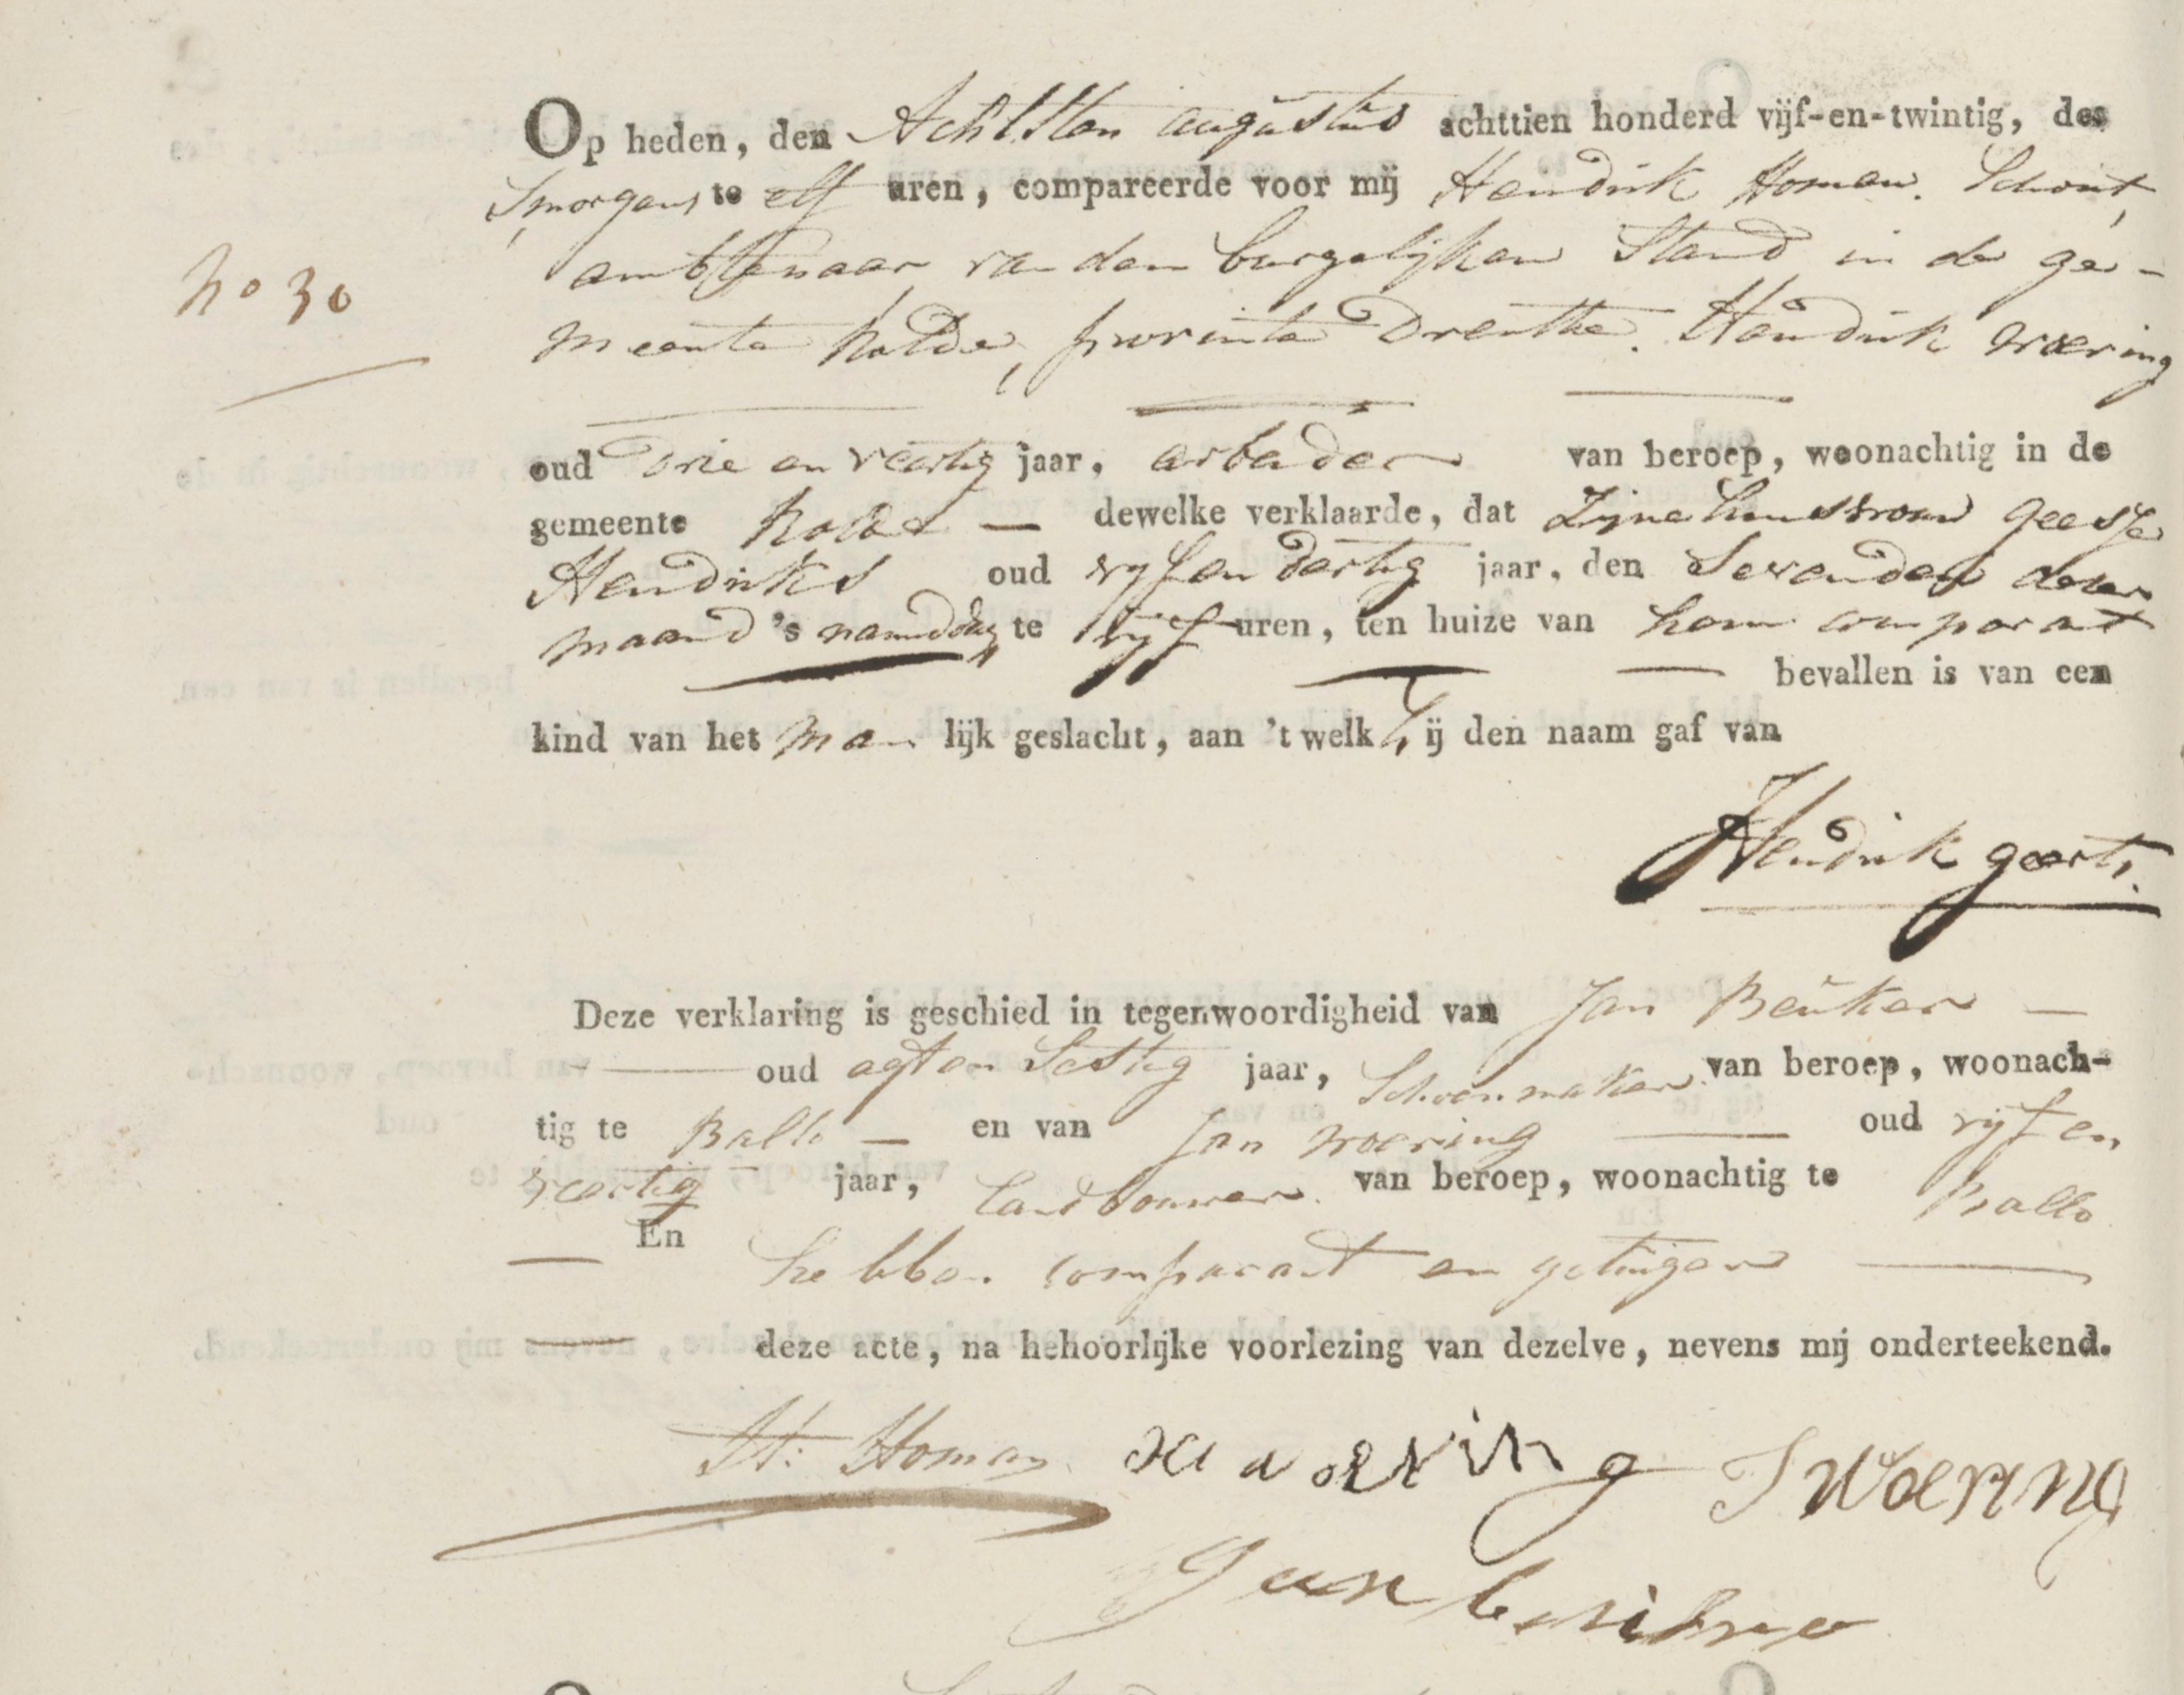 Op heden, den Achtsten augustus achttien honderd vijf-en-twintig, des
Smorgens te elf uren, compareerde voor mij Hendrik Homan. Schout,
ambtenaar van den burgelijken Stand in de ge-
meente Rolde, provintie Drenthe. Hendrik Woering
No 30
oud Drie en veertig jaar, arbeider van beroep, woonachtig in de
gemeente Rolde — dewelke verklaarde, dat Zijne huisvrouw geesje
Hendriks oud vyf en dertig jaar, den Sevenden dezer
maand 's namiddag te vijf uren, ten huize van hem comparant
— bevallen is van een
kind van het man lijk geslacht, aan 't welk hij den naam gaf van
Hendrik geert.
Deze verklaring is geschied in tegenwoordigheid van Jan Beuker —
— oud agt en Sestig jaar, Schoenmaker van beroep, woonach-
tig te Ballo — en van Jan Woering — oud vijf en
veertig jaar, Landbouwer van beroep, woonachtig te Ballo
— En hebben comparant en getuigen —
deze acte, na behoorlijke voorlezing van dezelve, nevens mij onderteekend.
H. Homan woering J Woering
Jan